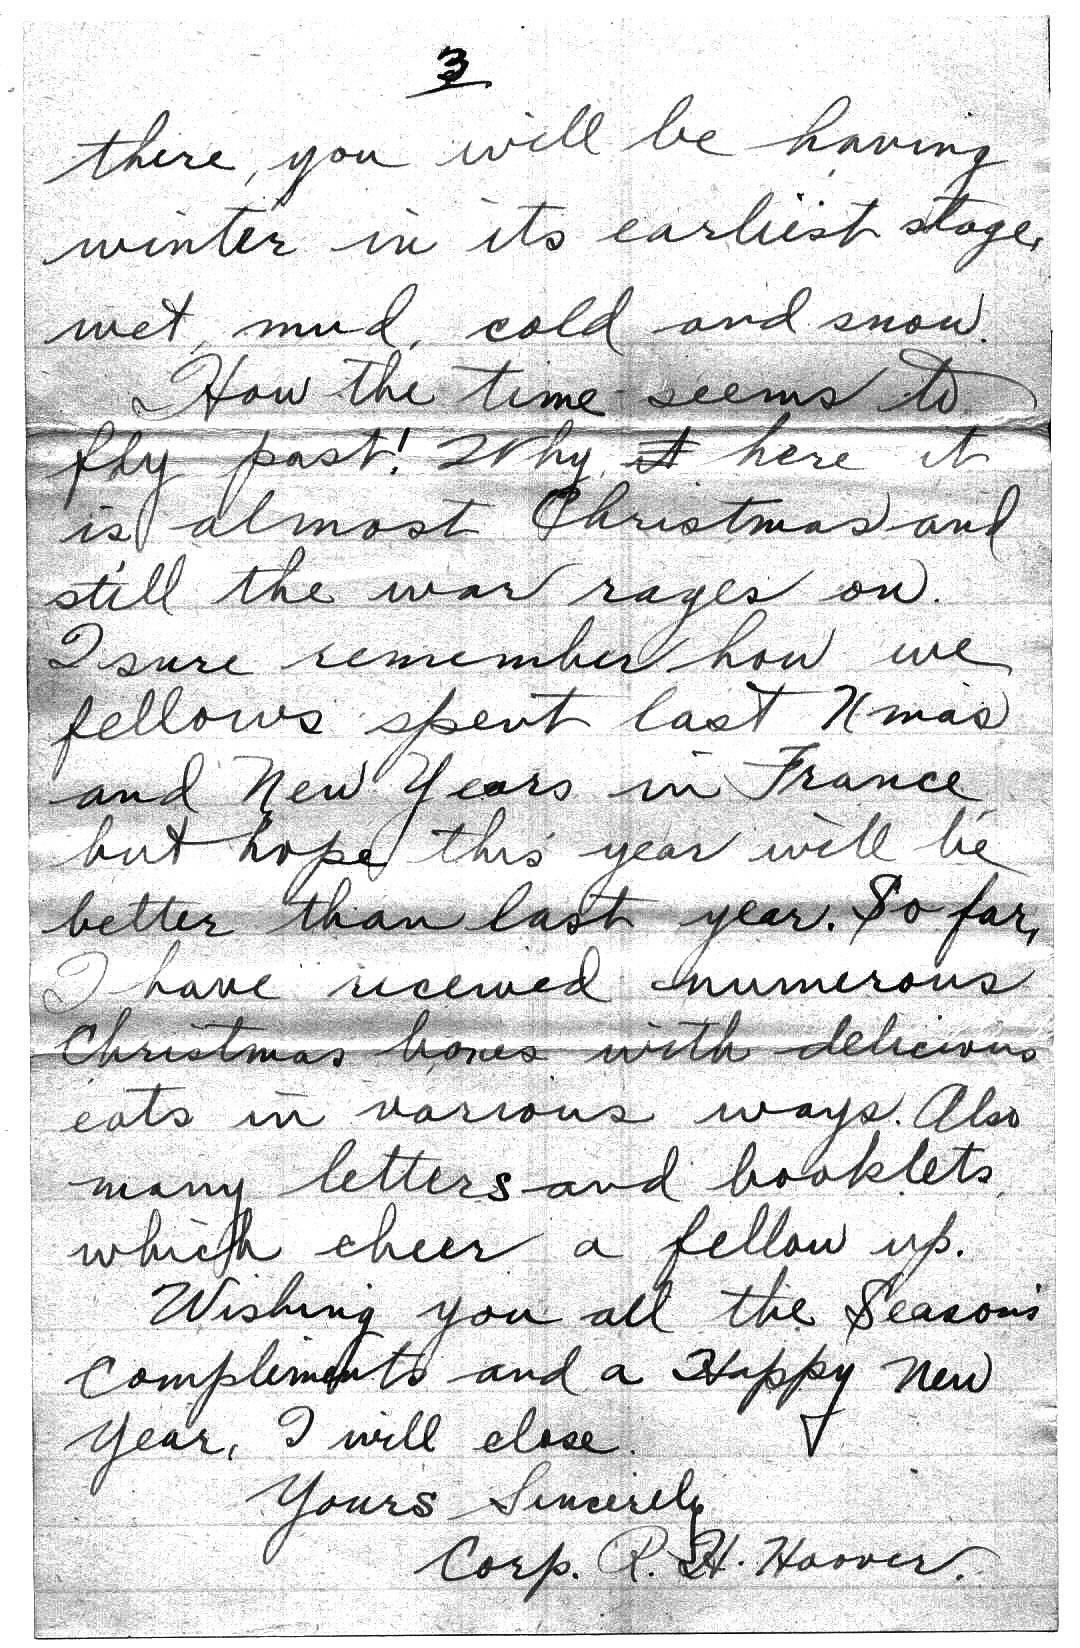 3
there, you will be having
winter in its earliest stage,
wet, mud, cold and snow.
How the time seems to
fly past! Why, it here it
is almost Christmas and
still the war rages on.
I sure remember how we
fellows spent last Xmas
and New Years in France,
but hope this year will be
better than last year. So far,
I have received numerous
Christmas boxes with delicious
eats in various ways. Also
many letters and booklets,
which cheer a fellow up.
Wishing you all the Season's
compliments and a Happy New
Year, I will close.
Yours Sincerely
Corp. R. H. Hoover.